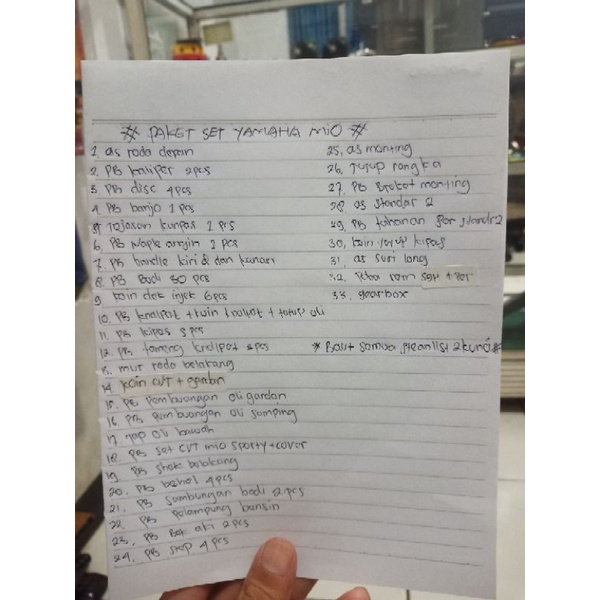 # PAKET SET YAMAHA MIO #
1. as roda depan
2. PB kaliper 2pcs
3. PB disc 4pcs
4. PB banjo 1 pcs
5. kampas 1 pcs
6. PB 1 pcs
7. PB handle kiri & dan kanan
8. PB Bodi 50 pcs
9. koin dek injek 6pcs
10. PB knalpot + koin knalpot + tutup oli
11. PB kipas 3 pcs
12. PB tameng knalpot 2pcs
13. mur roda belakang
14. koin CVT + gardan
15. PB Pembuangan oli gardan
16. PB Pembuangan oli samping
17. TOP oli bawah
18. PB set CVT mio sporty + cover
19. PB shok belakang
20. PB behel 4pcs
21. PB sambungan bodi 2pcs
22. PB Pelampung bensin
23. PB Bok aki 2pcs
24. PB step 4pcs
25. as monting
26. Tutup rangka
27. PB Breket monting
28. as standar 2
29. PB tahanan per standr 2
30. koin tutup kipas
31. as suri lang
32. rem set + per
33. gearbox
* Baut semua 2 kunci #